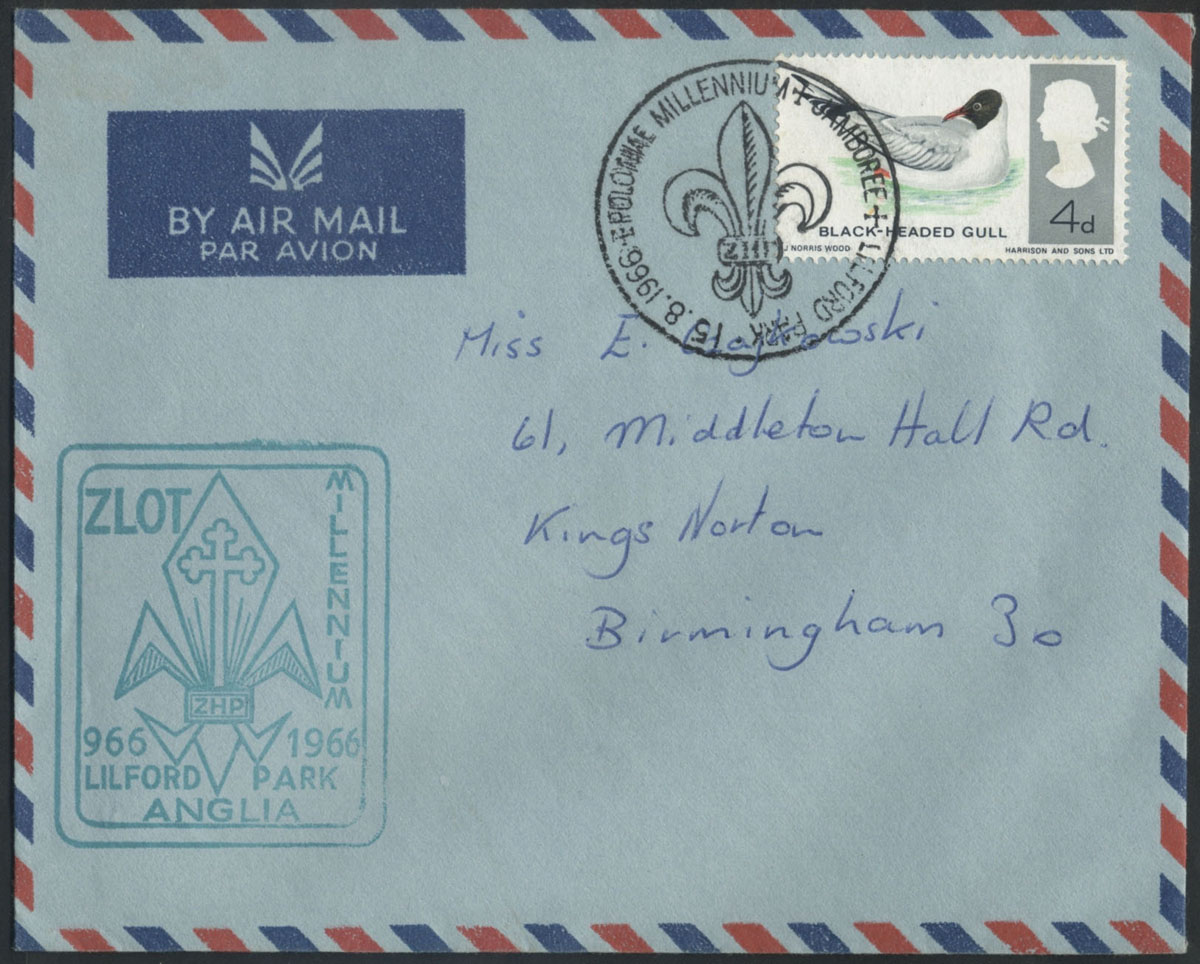 BY AIR MAIL
PAR AVION
POLONIAE MILLENNIUM JAMBOREE LILFORD PARK 15.8.1966
BLACK-HEADED GULL
4d
J NORRIS WOOD
HARRISON AND SONS LTD
Miss E. Czajkowski
61, Middleton Hall Rd.
Kings Norton
Birmingham 30
ZLOT
MILLENNIUM
ZHP
966 1966
LILFORD PARK
ANGLIA